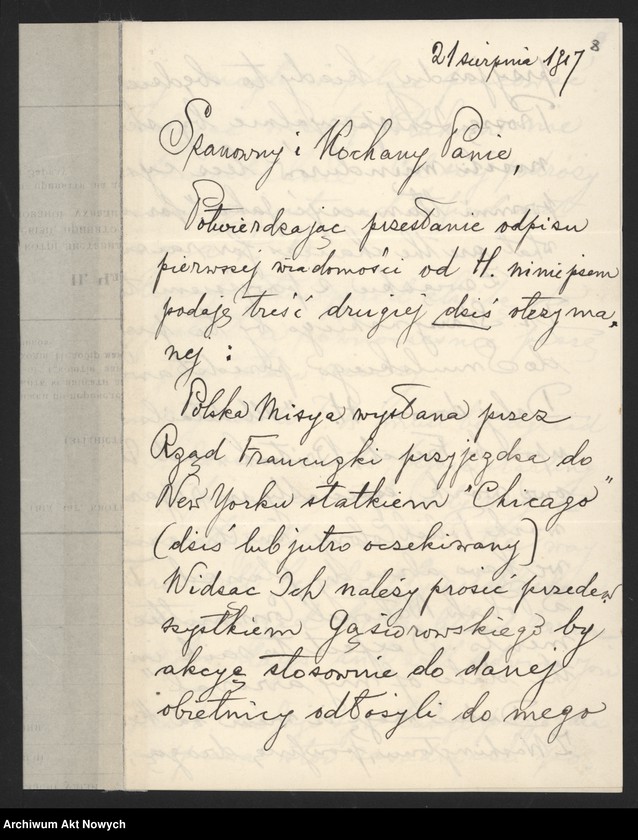 8
21 sierpnia 1917
Szanowny i Kochany Panie,
Potwierdzając przesłanie odpisu
pierwszej wiadomości od H. niniejszem
podaję treść drugiej dziś otrzyma,
nej :
Polska Misya wysłana przez
Rząd Francuzki przyjezdza do
New Yorku statkiem "Chicago"
(dziś lub jutro oczekiwany)
Widząc Ich należy prosić przede,
wszystkiem Gąsiorowskiego by
akcyę stosownie do danej
obietnicy odłożyli do mego
Archiwum Akt Nowych